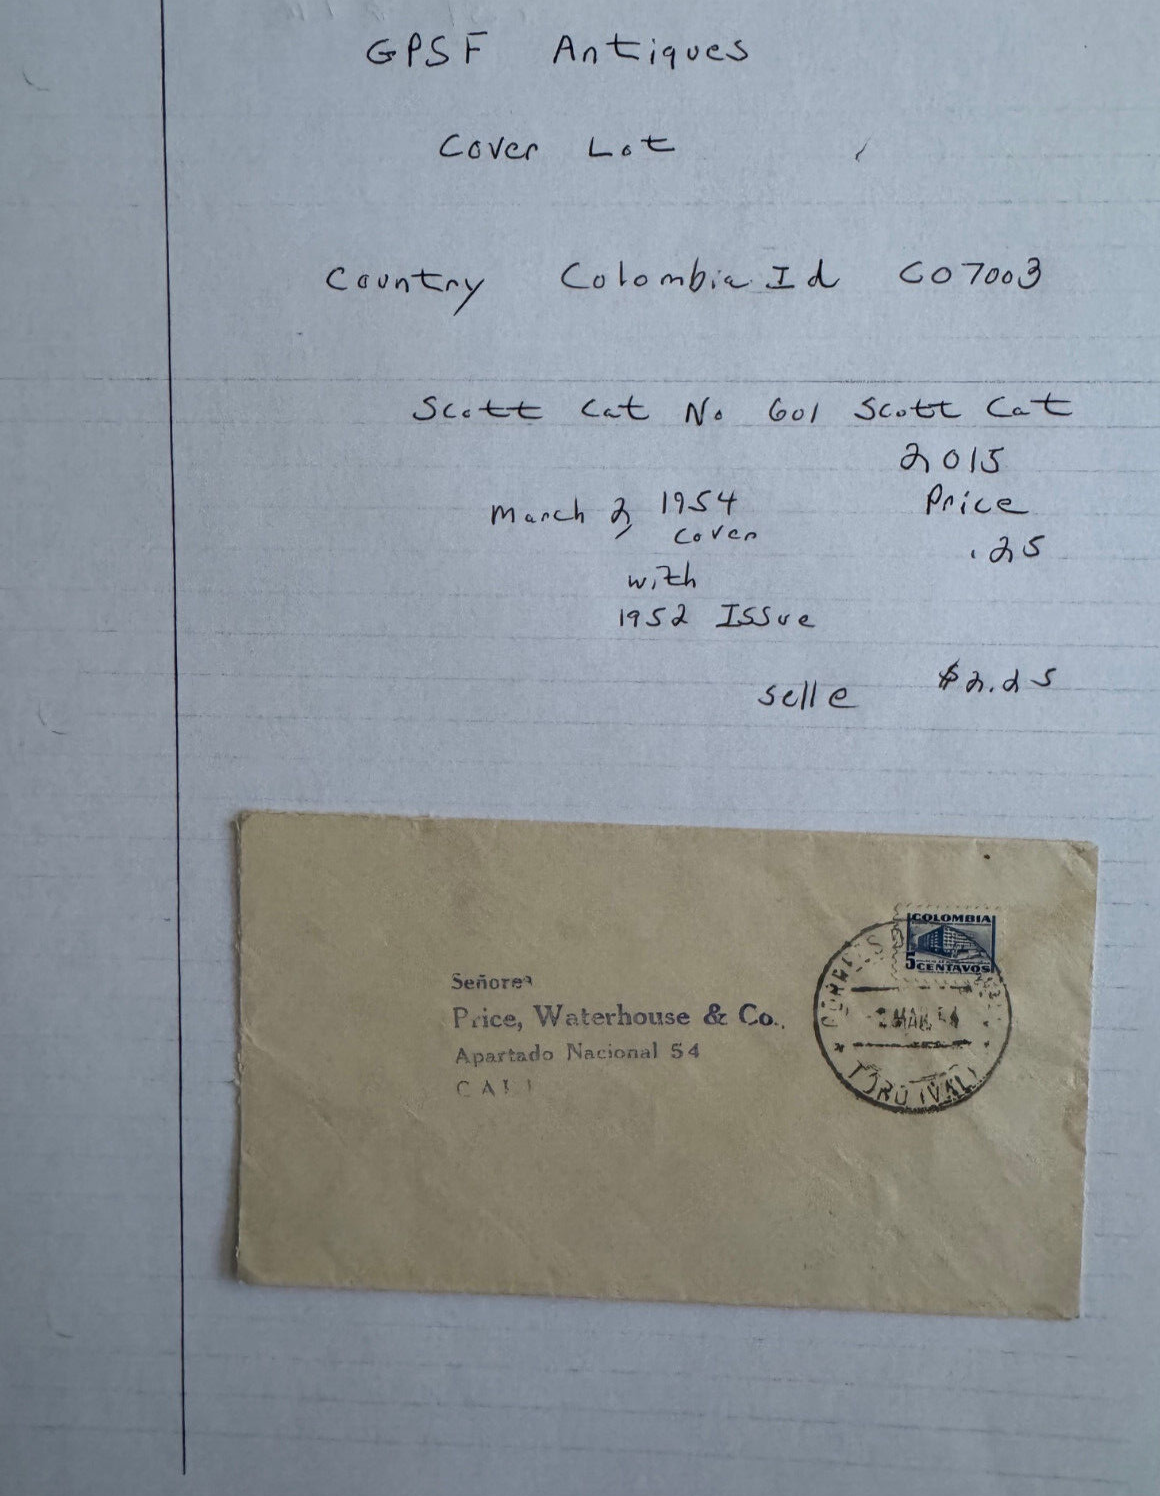 GPSF Antiques
Cover Lot
Country Colombia Id CO7003
Scott Cat No 601 Scott Cat
2015
March 2, 1954 Price
cover .25
with
1952 Issue
selle $2.25
COLOMBIA
5 CENTAVOS
CORREOS
MAR. 54
TORO (VAL)
Señores
Price, Waterhouse & Co.,
Apartado Nacional 54
CALI